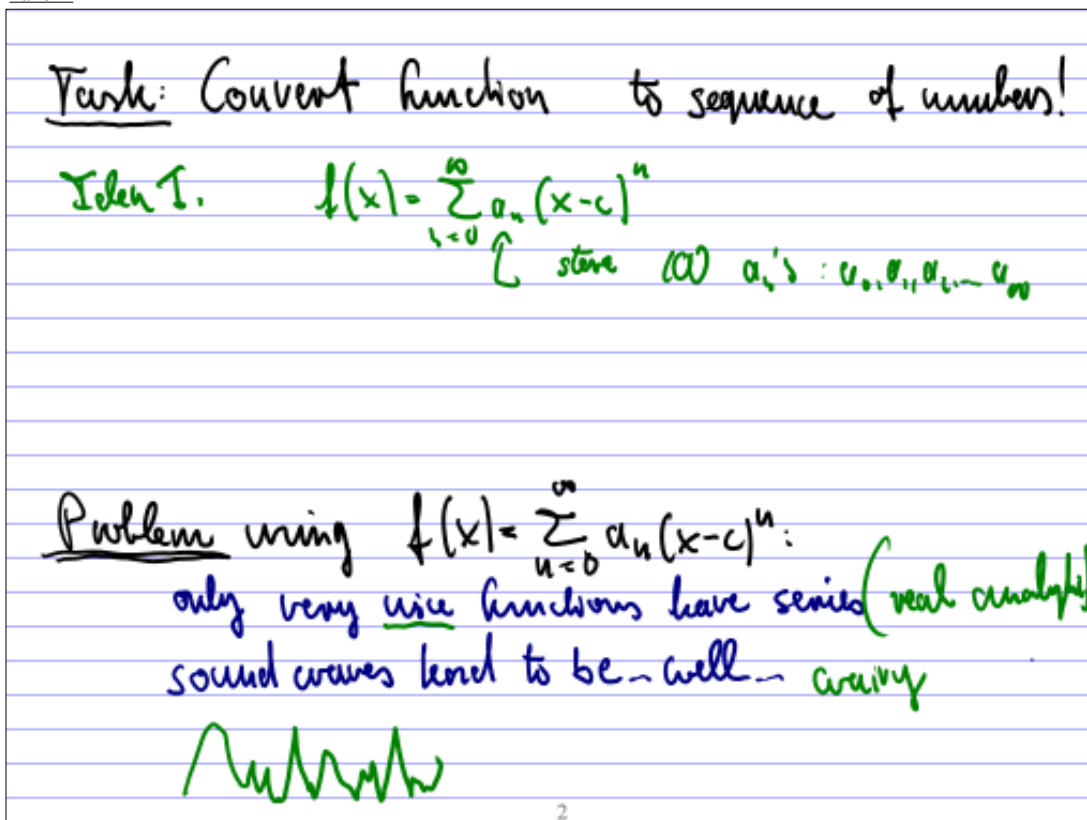 Task: Convert function to sequence of numbers!
Idea I. f(x) = ∑_{n=0}^{∞} a_n (x-c)^n
store (∞) a_n's : a_0, a_1, a_2, ... a_∞
Problem using f(x) = ∑_{n=0}^{∞} a_n (x-c)^n :
only very nice functions have series (real analytic
sound waves tend to be - well - wavy
2